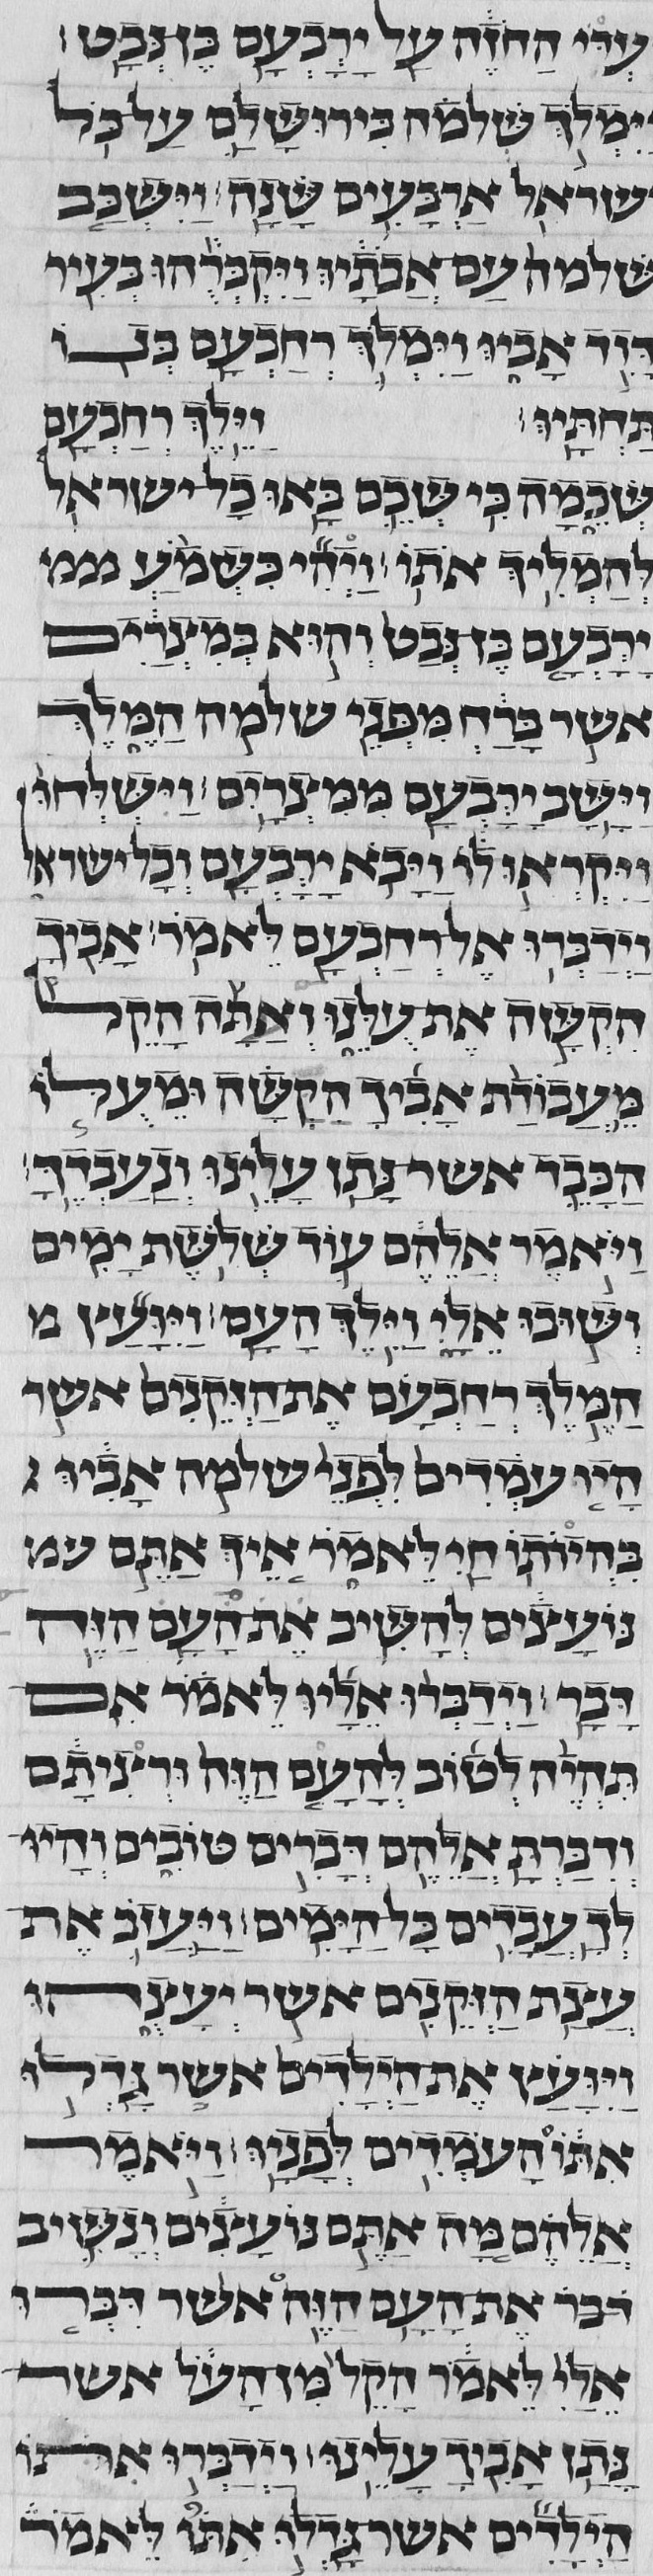 יֶעְדּוֹ הַחֹזֶה עַל יָרָבְעָם בֶּן נְבָט׃
וַיִּמְלֹךְ שְׁלֹמֹה בִירוּשָׁלַםִ עַל כָּל
ישראל אַרְבָּעִים שָׁנָה׃ וַיִּשְׁכַּב
שְׁלֹמֹה עִם אֲבֹתָיו וַיִּקְבְּרֻהוּ בְּעִיר
דָּוִד אָבִיו וַיִּמְלֹךְ רְחַבְעָם בְּנוֹ
תַּחְתָּיו׃ וַיֵּלֶךְ רְחַבְעָם
שְׁכֶמָה כִּי שְׁכֶם בָּאוּ כָל ישראל
לְהַמְלִיךְ אֹתוֹ׃ וַיְהִי כִּשְׁמֹעַ
יָרָבְעָם בֶּן נְבָט וְהוּא בְמִצְרַיִם
אשר בָּרַח מִפְּנֵי שלמה הַמֶּלֶךְ
וַיָּשָׁב יָרָבְעָם מִמִּצְרָיִם׃ וַיִּשְׁלְחוּ
וַיִּקְרְאוּ לוֹ וַיָּבֹא יָרָבְעָם וְכָל ישראל
וַיְדַבְּרוּ אֶל רְחַבְעָם לֵאמֹר׃ אָבִיךָ
הִקְשָׁה אֶת עֻלֵּנוּ וְאַתָּה הָקֵל
מֵעֲבוֹדַת אָבִיךָ הַקָּשָׁה וּמֵעֻלּוֹ
הַכָּבֵד אשר נָתַן עָלֵינוּ וְנַעַבְדֶךָּ׃
וַיֹּאמֶר אֲלֵהֶם עוֹד שְׁלֹשֶׁת יָמִים
וְשׁוּבוּ אֵלָי וַיֵּלֶךְ הָעָם׃ וַיִּוָּעַץ
הַמֶּלֶךְ רְחַבְעָם אֶת הַזְּקֵנִים אשר
הָיוּ עֹמְדִים לִפְנֵי שלמה אָבִיו
בִּהְיוֹתוֹ חַי לֵאמֹר אֵיךְ אַתֶּם
נוֹעָצִים לְהָשִׁיב אֶת הָעָם הַזֶּה
דָּבָר׃ וַיְדַבְּרוּ אֵלָיו לֵאמֹר אִם
תִּהְיֶה לְטוֹב לְהָעָם הַזֶּה וּרְצִיתָם
וְדִבַּרְתָּ אֲלֵהֶם דְּבָרִים טוֹבִים וְהָיוּ
לְךָ עֲבָדִים כָּל הַיָּמִים׃ וַיַּעֲזֹב אֶת
עֲצַת הַזְּקֵנִים אשר יְעָצֻהוּ
וַיִּוָּעַץ אֶת הַיְלָדִים אשר גָּדְלוּ
אִתּוֹ הָעֹמְדִים לְפָנָיו׃ וַיֹּאמֶר
אֲלֵהֶם מָה אַתֶּם נוֹעָצִים וְנָשִׁיב
דָּבָר אֶת הָעָם הַזֶּה אשר דִּבְּרוּ
אֵלַי לֵאמֹר הָקֵל מִן הָעֹל אשר
נָתַן אָבִיךָ עָלֵינוּ׃ וַיְדַבְּרוּ אִתּוֹ
הַיְלָדִים אשר גָּדְלוּ אִתּוֹ לֵאמֹר